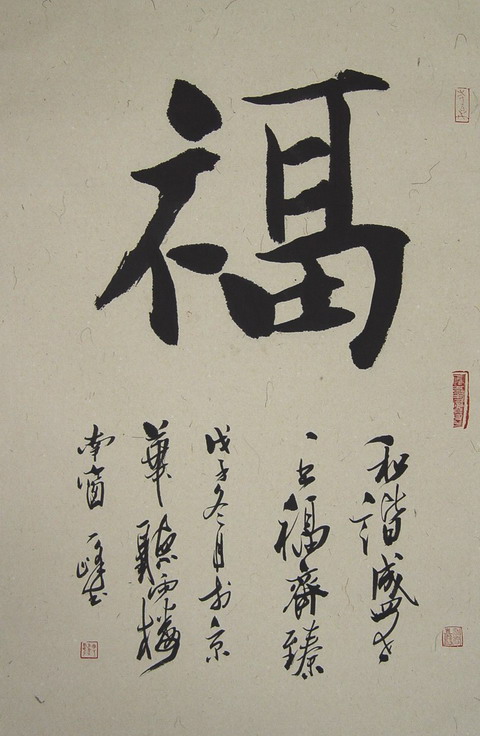 福
和諧盛世
五福齊臻
戊子冬月於京
華聽雨樓
南窗 一峰